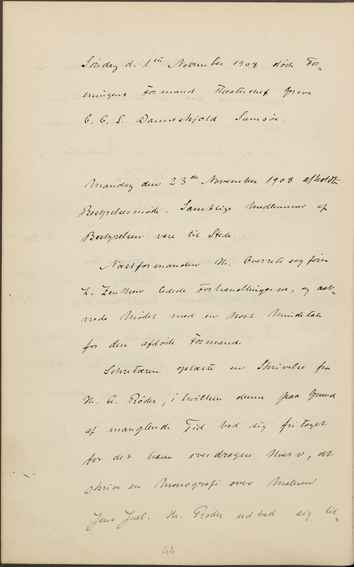 Søndag d. 1ste November 1908 døde For-
eningens Formand Theaterchef Greve
C. C. S. Danneskjold Samsøe.
Mandag den 23de November 1908 afholdtes
Bestyrelsesmøde. Samtlige Medlemmer af
Bestyrelsen vare til Stede.
Næstformanden Hr. Overretssagfører
L. Zeuthen ledede Forhandlingerne, og aab-
nede Mødet med en kort Mindetale
for den afdøde Formand.
Sekretæren oplæste en Skrivelse fra
Hr. A. Røder, i hvilken denne paa Grund
af manglende Tid bad sig fritaget
for det ham overdragne Hverv, at
skrive en Monografi over Maleren
Jens Juel. Hr. Røder udbad sig til-
44